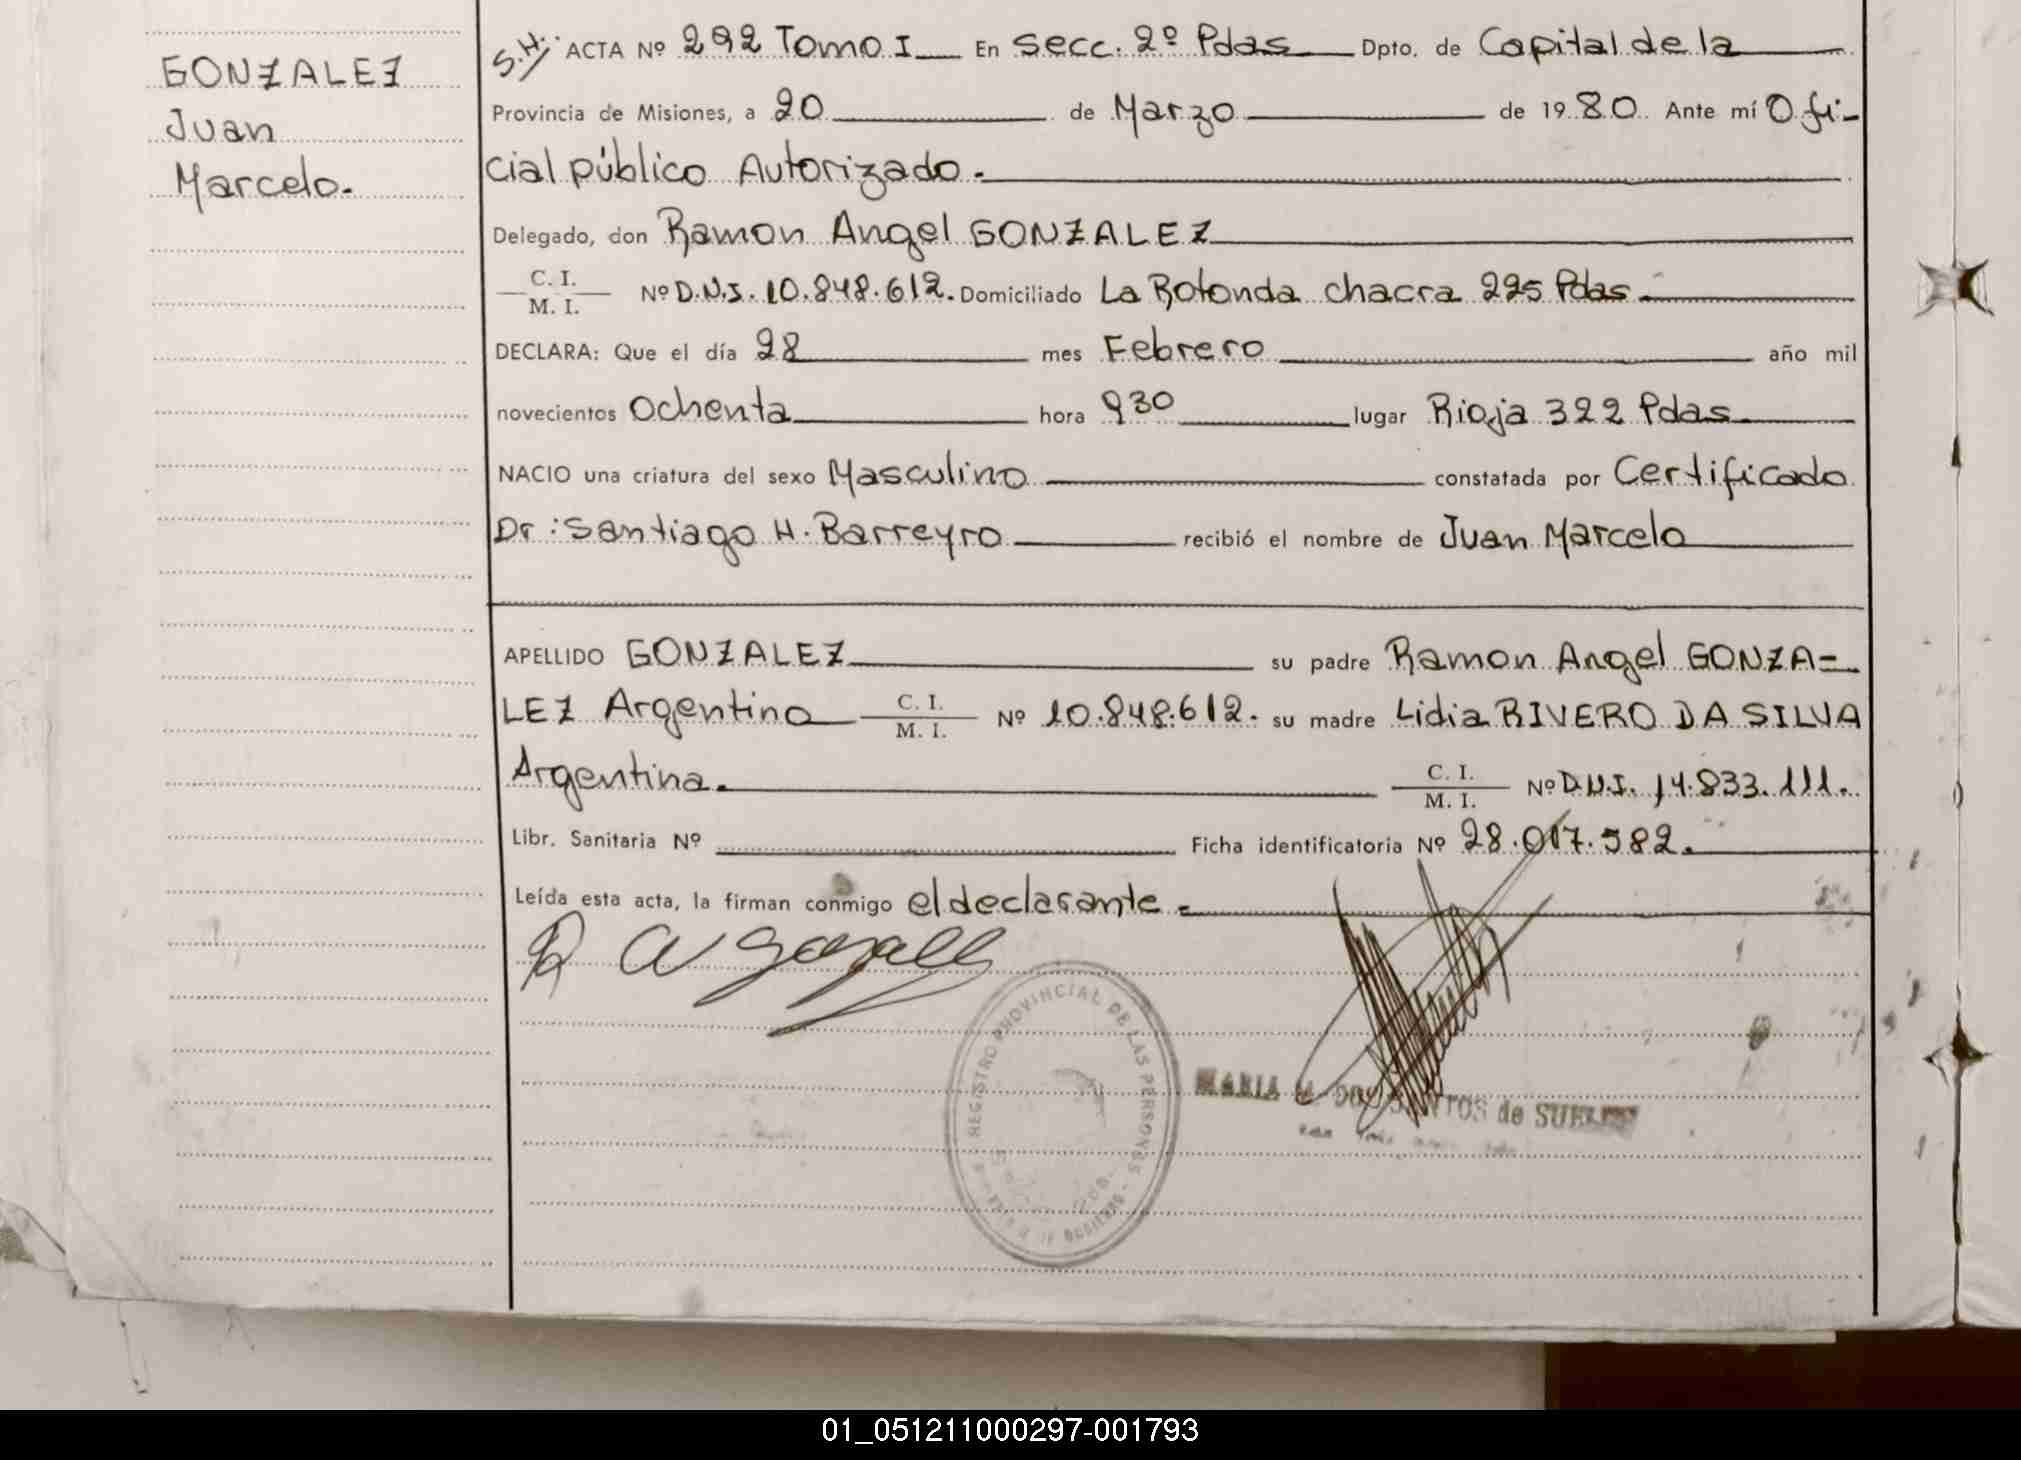 GONZALEZ
Juan
Marcelo.
S.H. ACTA Nº 292 Tomo I En Secc. 2º Pdas Dpto. de Capital de la
Provincia de Misiones, a 20 de Marzo de 1980. Ante mí Ofi-
cial público Autorizado.
Delegado, don Ramon Angel GONZALEZ
C. I.
M. I. Nº D.N.I. 10.848.612. Domiciliado La Rotonda chacra 225 Pdas.
DECLARA: Que el día 28 mes Febrero año mil
novecientos Ochenta hora 930 lugar Rioja 322 Pdas
NACIO una criatura del sexo Masculino constatada por Certificado
Dr: Santiago H. Barreyro recibió el nombre de Juan Marcelo
APELLIDO GONZALEZ su padre Ramon Angel GONZA=
LEZ Argentino C. I. M. I. Nº 10.848.612. su madre Lidia RIVERO DA SILVA
Argentina. C. I. M. I. Nº D.N.I. 14.833.111.
Libr. Sanitaria Nº Ficha identificatoria Nº 28.017.982.
Leída esta acta, la firman conmigo el declarante.
REGISTRO PROVINCIAL DE LAS PERSONAS
MARIA DOS SANTOS de
01_051211000297-001793